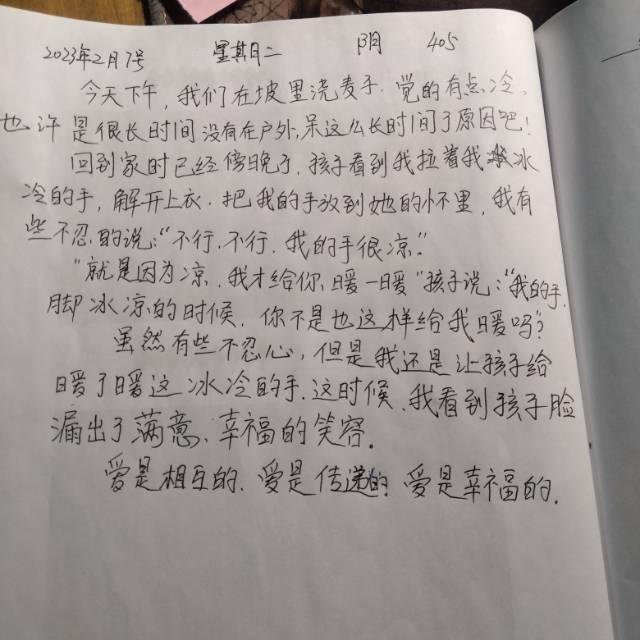 2023年2月7号 星期二 阴 405
今天下午，我们在坡里浇麦子．觉的有点冷、
也许是很长时间没有在户外，呆这么长时间了原因吧！
回到家时已经傍晚了．孩子看到我拉着我冰
冷的手，解开上衣．把我的手放到她的怀里，我有
些不忍的说：“不行、不行．我的手很凉．”
“就是因为凉．我才给你暖一暖”孩子说：“我的手．
脚冰凉的时候．你不是也这样给我暖吗？
虽然有些不忍心，但是我还是让孩子给
暖了暖这冰冷的手．这时候、我看到孩子脸
漏出了满意、幸福的笑容．
爱是相互的．爱是传递的 爱是幸福的．